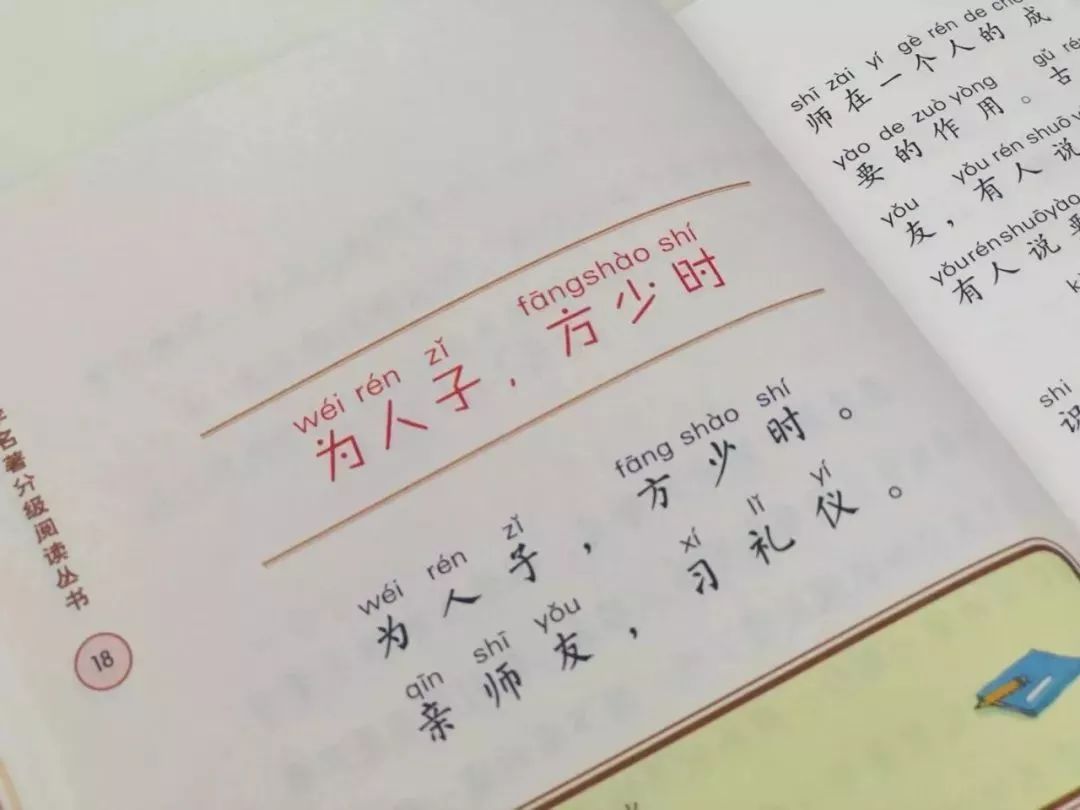 wéi rén zǐ fāngshào shí
为人子，方少时
wéi rén zǐ fāng shào shí
为人子，方少时。
qīn shī yǒu xí lǐ yí
亲师友，习礼仪。
名著分级阅读丛书
18
shī zài yí gè rén de
师在一个人的成
yào de zuò yòng gǔ
要的作用。古
yǒu yǒu rén shuō
友，有人说
yǒurénshuōyào
有人说要
shi
识